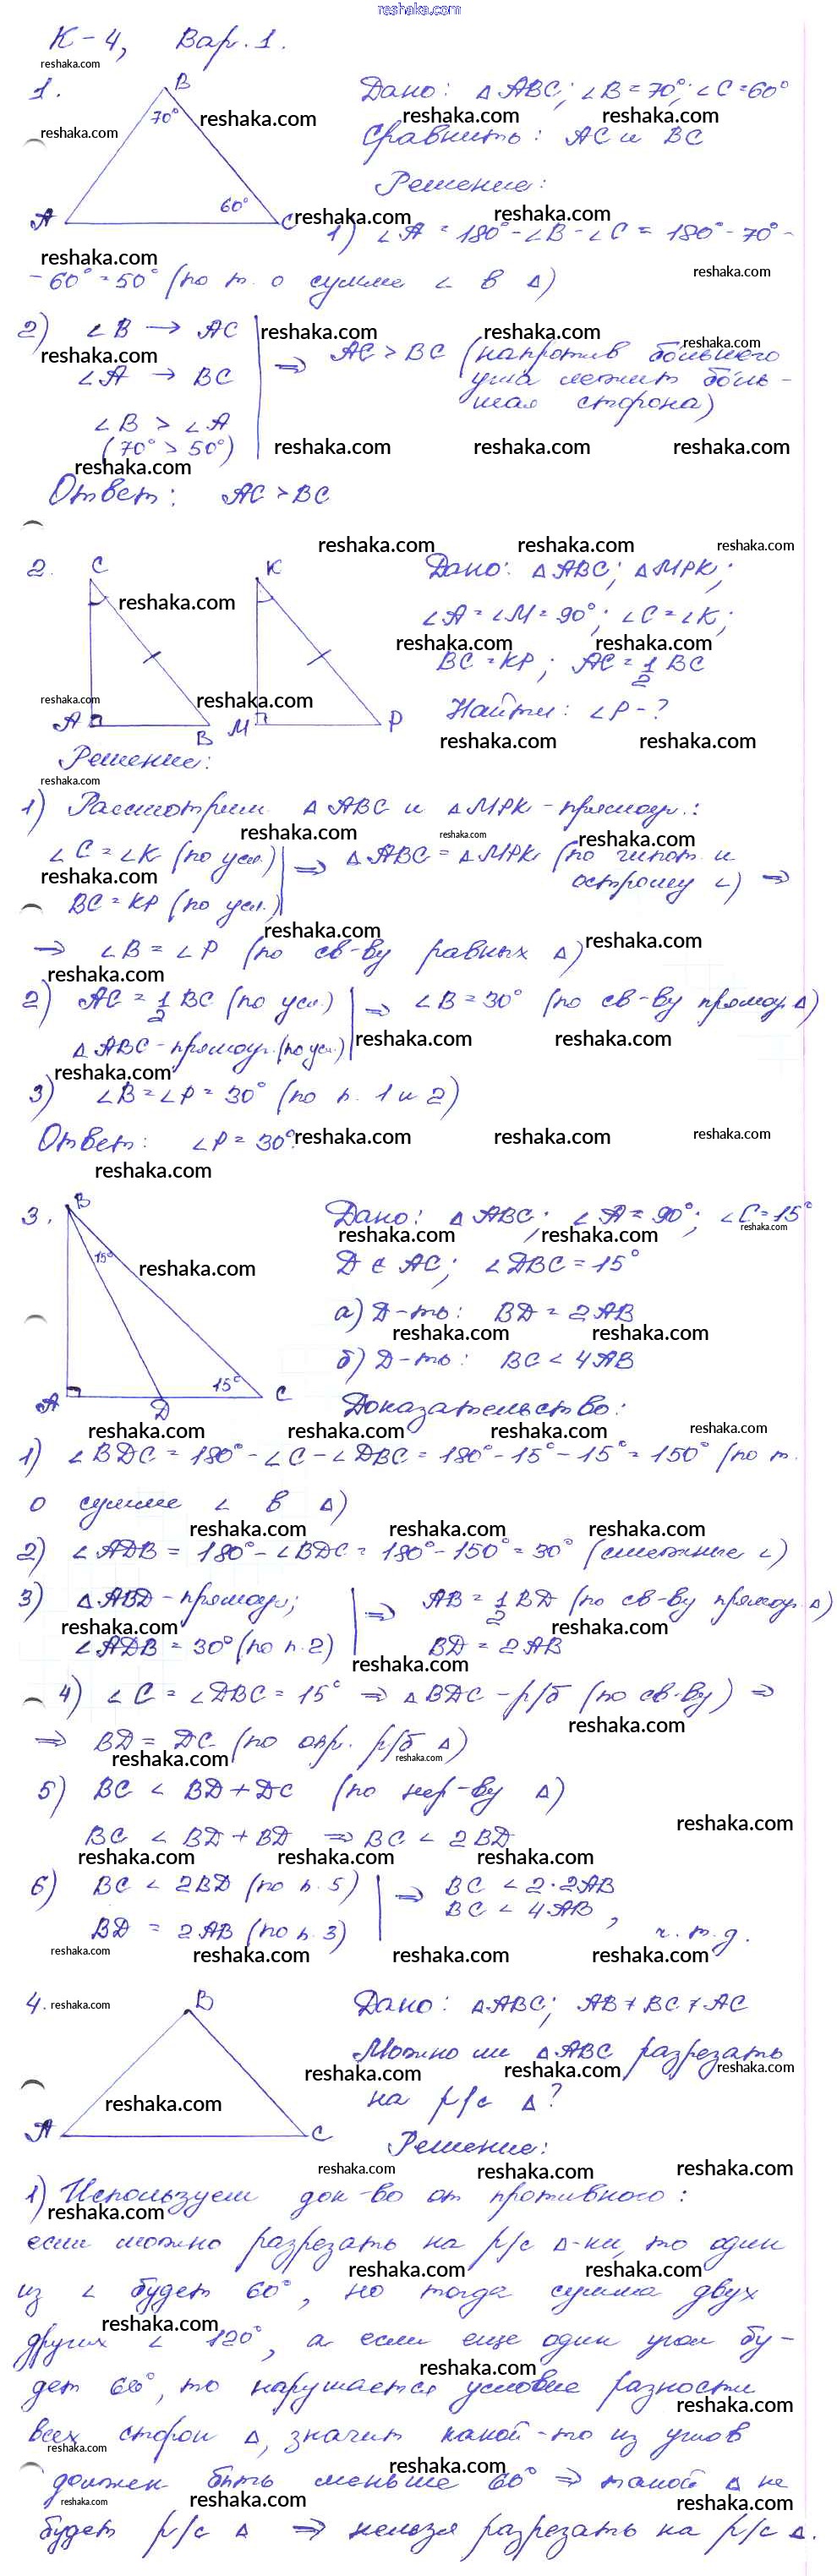 reshaka.com
К-4, Вар. 1.
1.
B
70°
60°
A
C
Дано: △ABC; ∠B = 70°; ∠C = 60°
Сравнить: AC и BC
Решение:
1) ∠A = 180° - ∠B - ∠C = 180° - 70° -
- 60° = 50° (по т. о сумме ∠ в △)
2) ∠B → AC
∠A → BC
∠B > ∠A
(70° > 50°)
⇒ AC > BC (напротив большего
угла лежит боль-
шая сторона)
Ответ: AC > BC
2.
C
K
A
B
M
P
Дано: △ABC; △MPK;
∠A = ∠M = 90°; ∠C = ∠K;
BC = KP; AC = 1/2 BC
Найти: ∠P - ?
Решение:
1) Рассмотрим △ABC и △MPK - прямоуг.:
∠C = ∠K (по усл.)
BC = KP (по усл.)
⇒ △ABC = △MPK (по гипот. и
острому ∠) ⇒
⇒ ∠B = ∠P (по св-ву равных △)
2) AC = 1/2 BC (по усл.)
△ABC - прямоуг. (по усл.)
⇒ ∠B = 30° (по св-ву прямоуг. △)
3) ∠B = ∠P = 30° (по п. 1 и 2)
Ответ: ∠P = 30°.
3.
B
15°
15°
A
D
C
Дано: △ABC; ∠A = 90°; ∠C = 15°
D ∈ AC; ∠DBC = 15°
а) Д-ть: BD = 2AB
б) Д-ть: BC < 4AB
Доказательство:
1) ∠BDC = 180° - ∠C - ∠DBC = 180° - 15° - 15° = 150° (по т.
о сумме ∠ в △)
2) ∠ADB = 180° - ∠BDC = 180° - 150° = 30° (смежные ∠)
3) △ABD - прямоуг.;
∠ADB = 30° (по п. 2)
⇒ AB = 1/2 BD (по св-ву прямоуг. △)
BD = 2AB
4) ∠C = ∠DBC = 15° ⇒ △BDC - р/б (по св-ву) ⇒
⇒ BD = DC (по опр. р/б △)
5) BC < BD + DC (по нер-ву △)
BC < BD + BD ⇒ BC < 2BD
6) BC < 2BD (по п. 5)
BD = 2AB (по п. 3)
⇒ BC < 2·2AB
BC < 4AB,
ч. т. д.
4.
B
A
C
Дано: △ABC; AB ≠ BC ≠ AC
Можно ли △ABC разрезать
на р/с △?
Решение:
1) Используем док-во от противного:
если можно разрезать на р/с △-ки, то один
из ∠ будет 60°, но тогда сумма двух
других ∠ 120°, а если еще один угол бу-
дет 60°, то нарушается условие разности
всех сторон △, значит какой-то из углов
должен быть меньше 60° ⇒ такой △ не
будет р/с △ ⇒ нельзя разрезать на р/с △.